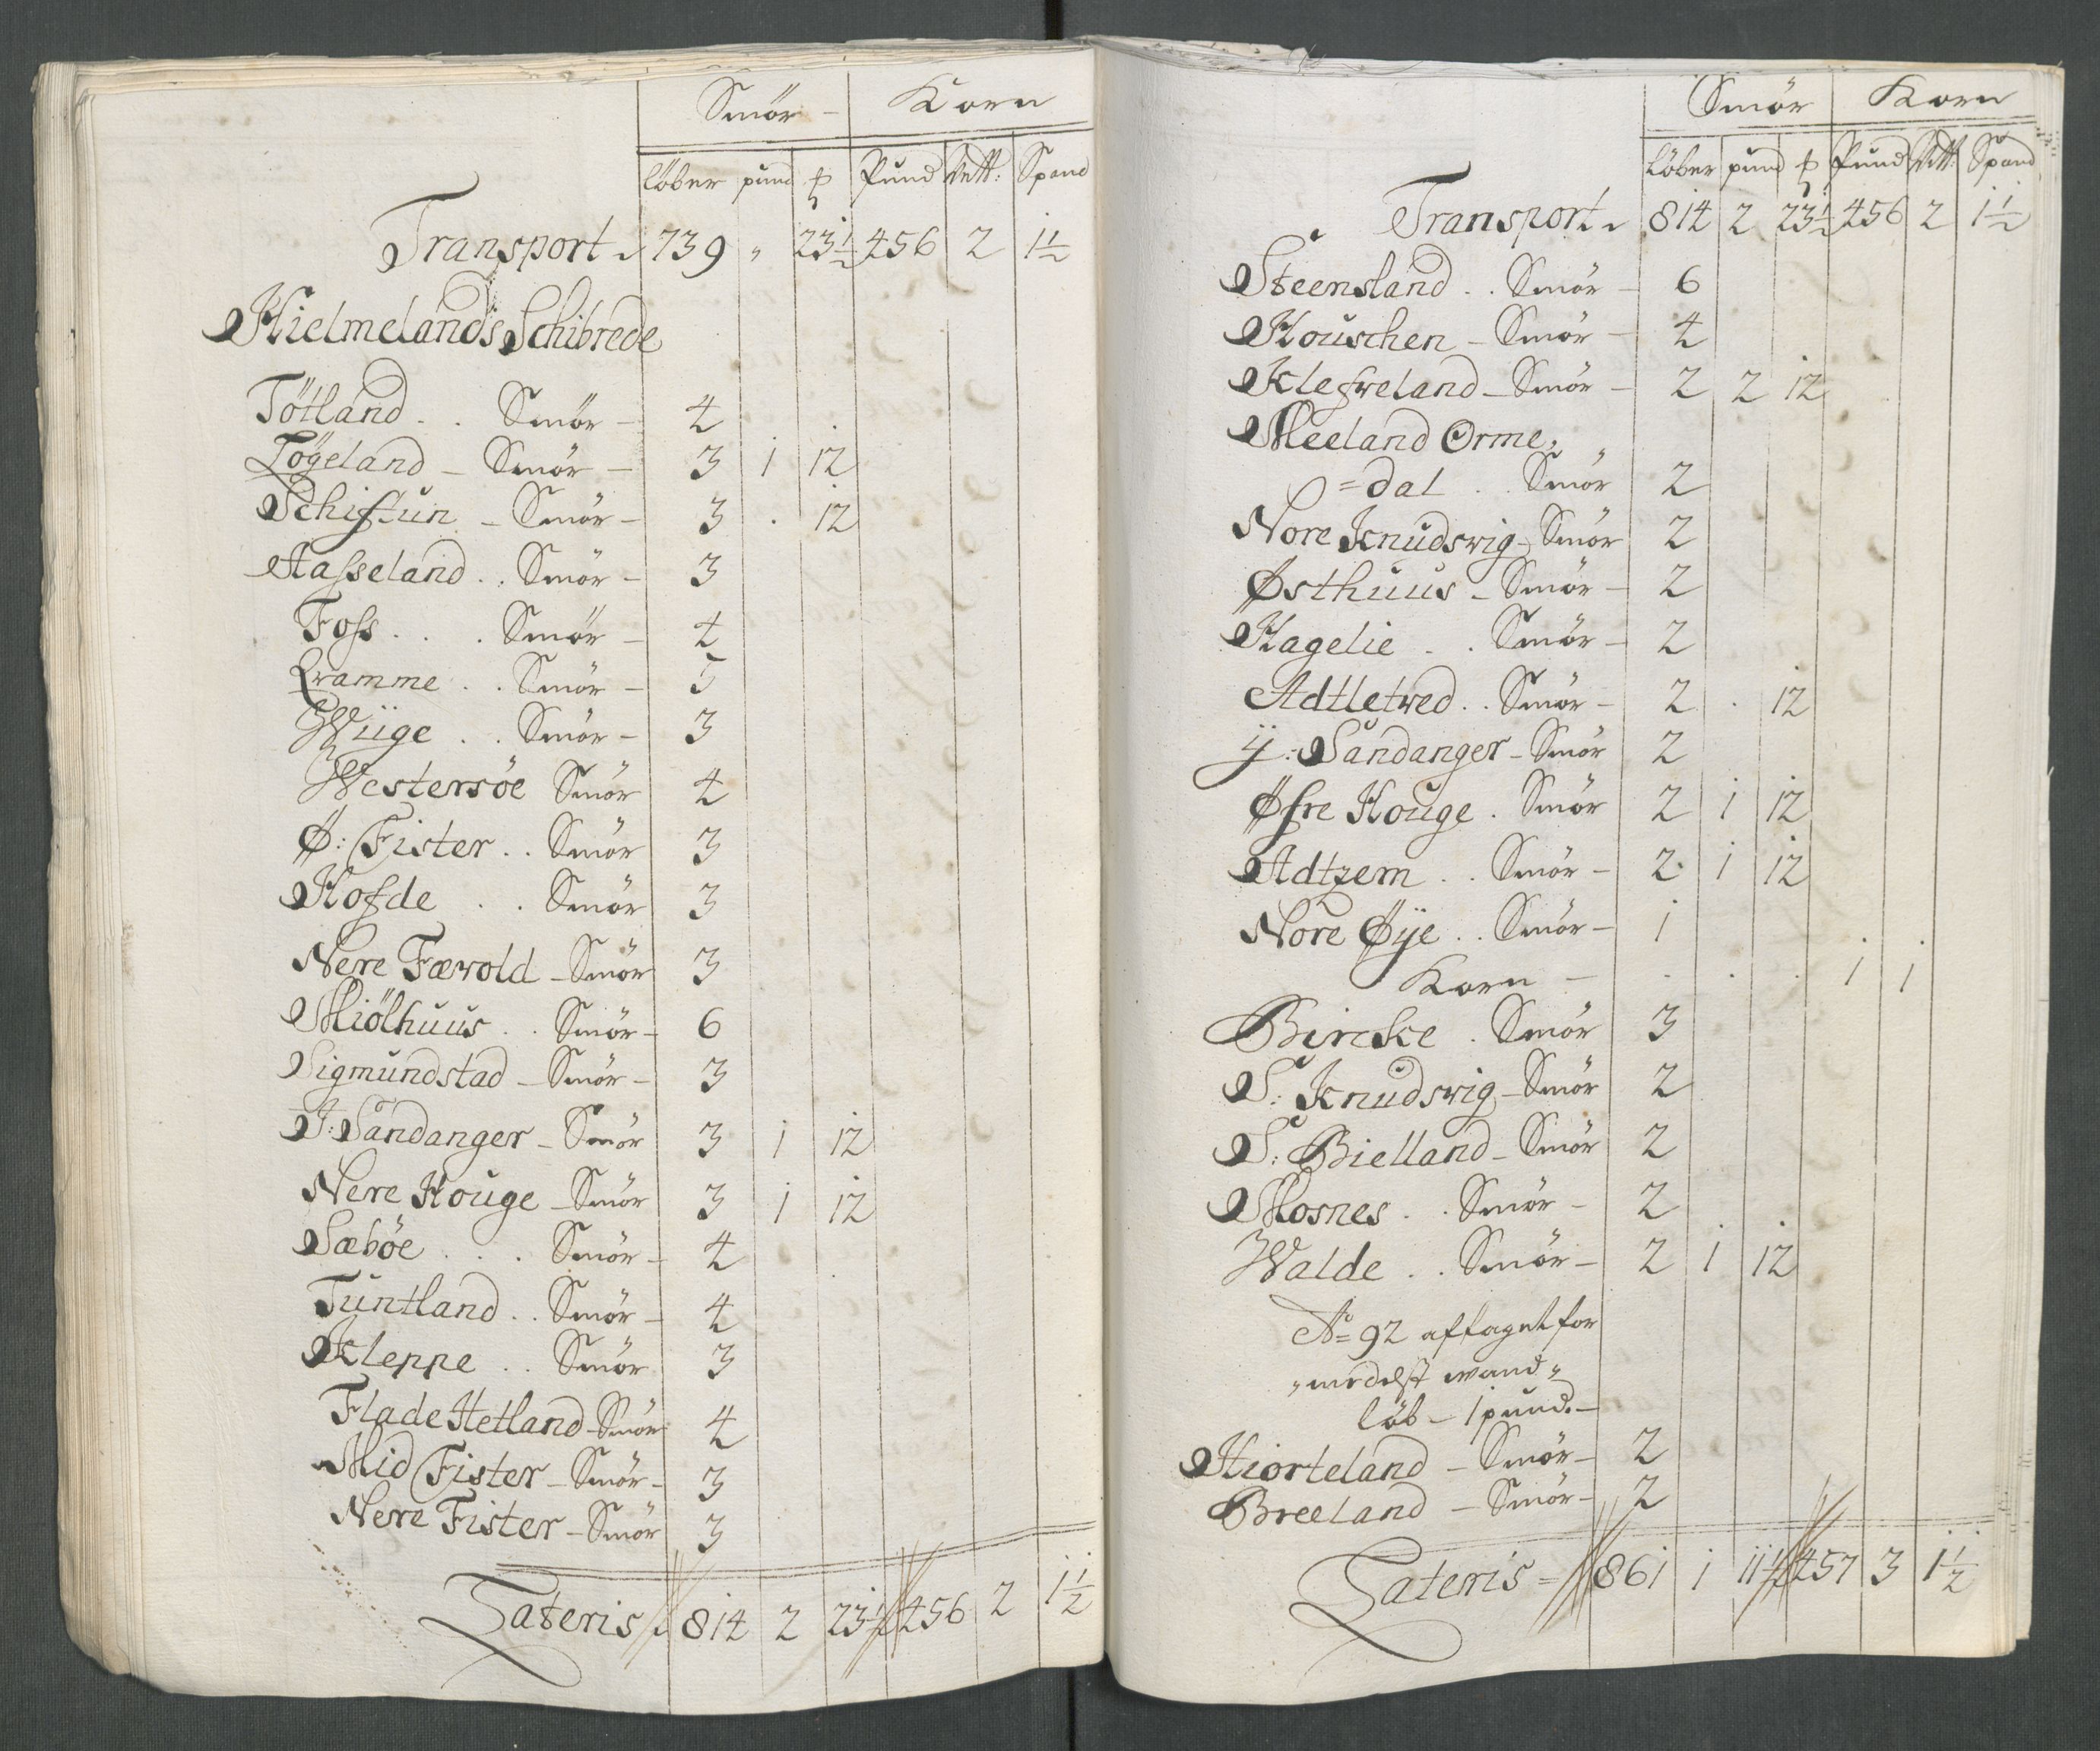 Smör - Korn
löber pund ℔ Pund Vett: Spand
Transport 739 " 23½ 456 2 1½
Hielmelands Schibrede
Tötland . . Smör - 4
Högeland - Smör - 3 1 12
Schiftun - Smör - 3 . 12
Aasseland . . Smör - 3
Foss . . . Smör - 4
Qvamme . . Smör - 5
Wiige . . Smör - 3
Westersöe Smör 4
Ø: Fister . . Smör 3
Hofde . . Smör 3
Nere Færvold - Smör 3
Miölhuus . . Smör - 6
Sigmundstad - Smör - 3
I: Sandanger - Smör 3 1 12
Nere Houge - Smör 3 1 12
Sæböe . . . Smör - 4
Tuntland . . Smör - 4
Kleppe . . Smör 3
Flade Hetland - Smör 4
Mid Fister - Smör - 3
Nere Fister - Smör 3
Lateris 814 2 23½ 456 2 1½
Smör Korn
löber pund ℔ Pund Vett: Spand
Transport 814 2 23½ 456 2 1½
Steensland . . Smör - 6
Houschen - Smör - 4
Klefveland - Smör - 2 2 12
Meeland Orme,
= dal . . Smör 2
Nore Knudsvig - Smör 2
Østhuus - Smör - 2
Hagelie . . Smör - 2
Adtletved . . Smör - 2 . 12
ÿ: Sandanger - Smör 2
Øfre Houge . Smör 2 1 12
Adtzem . . Smör - 2 1 12
Nore Øÿe . . Smör - 1
Korn - . . . 1 1
Bircke . Smör 3
S: Knudsvig - Smör 2
S: Bielland - Smör 2
Mosnes . . Smör - 2
Walde . . Smör - 2 1 12
Ao = 92 aftaget for
"medelst wand"
löb - 1 pund. -
Hiorteland - Smör - 2
Breeland - Smör - 2
Lateris = 861 1 11½ 457 3 1½